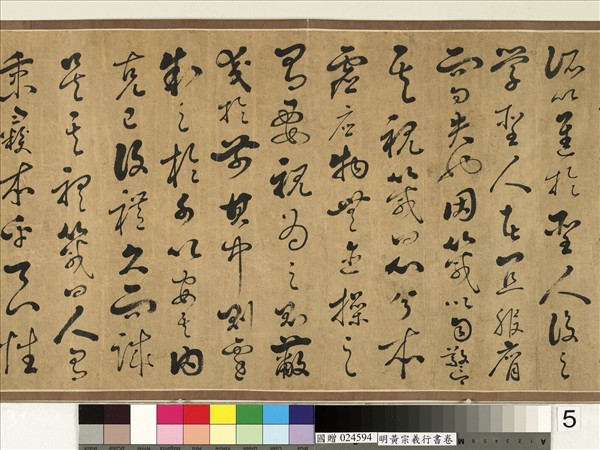 所以進於聖人後之
学聖人者宜服膺
而勿失也因箴以自警
其視箴曰心兮本
虛應物無迹操之
有要視為之則蔽
交於前其中則遷
制之於外以安其內
克己復禮久而誠
矣其聽箴曰人有
秉彝本乎天性
國贈 024594 明黃宗羲行書卷
5